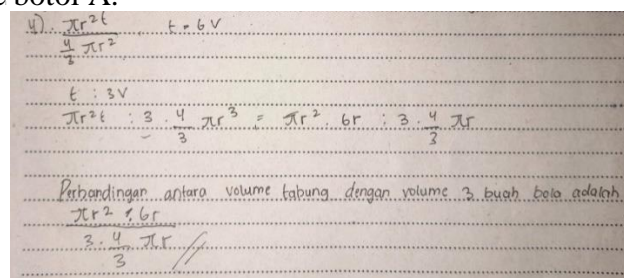 e botol A.
4). πr²t / 4/3 πr² . t = 6V
t : 3V
πr²t : 3 . 4/3 πr³ = πr² . 6r : 3 . 4/3 πr
Perbandingan antara volume tabung dengan volume 3 buah bola adalah
πr² . 6r / 3 . 4/3 πr //